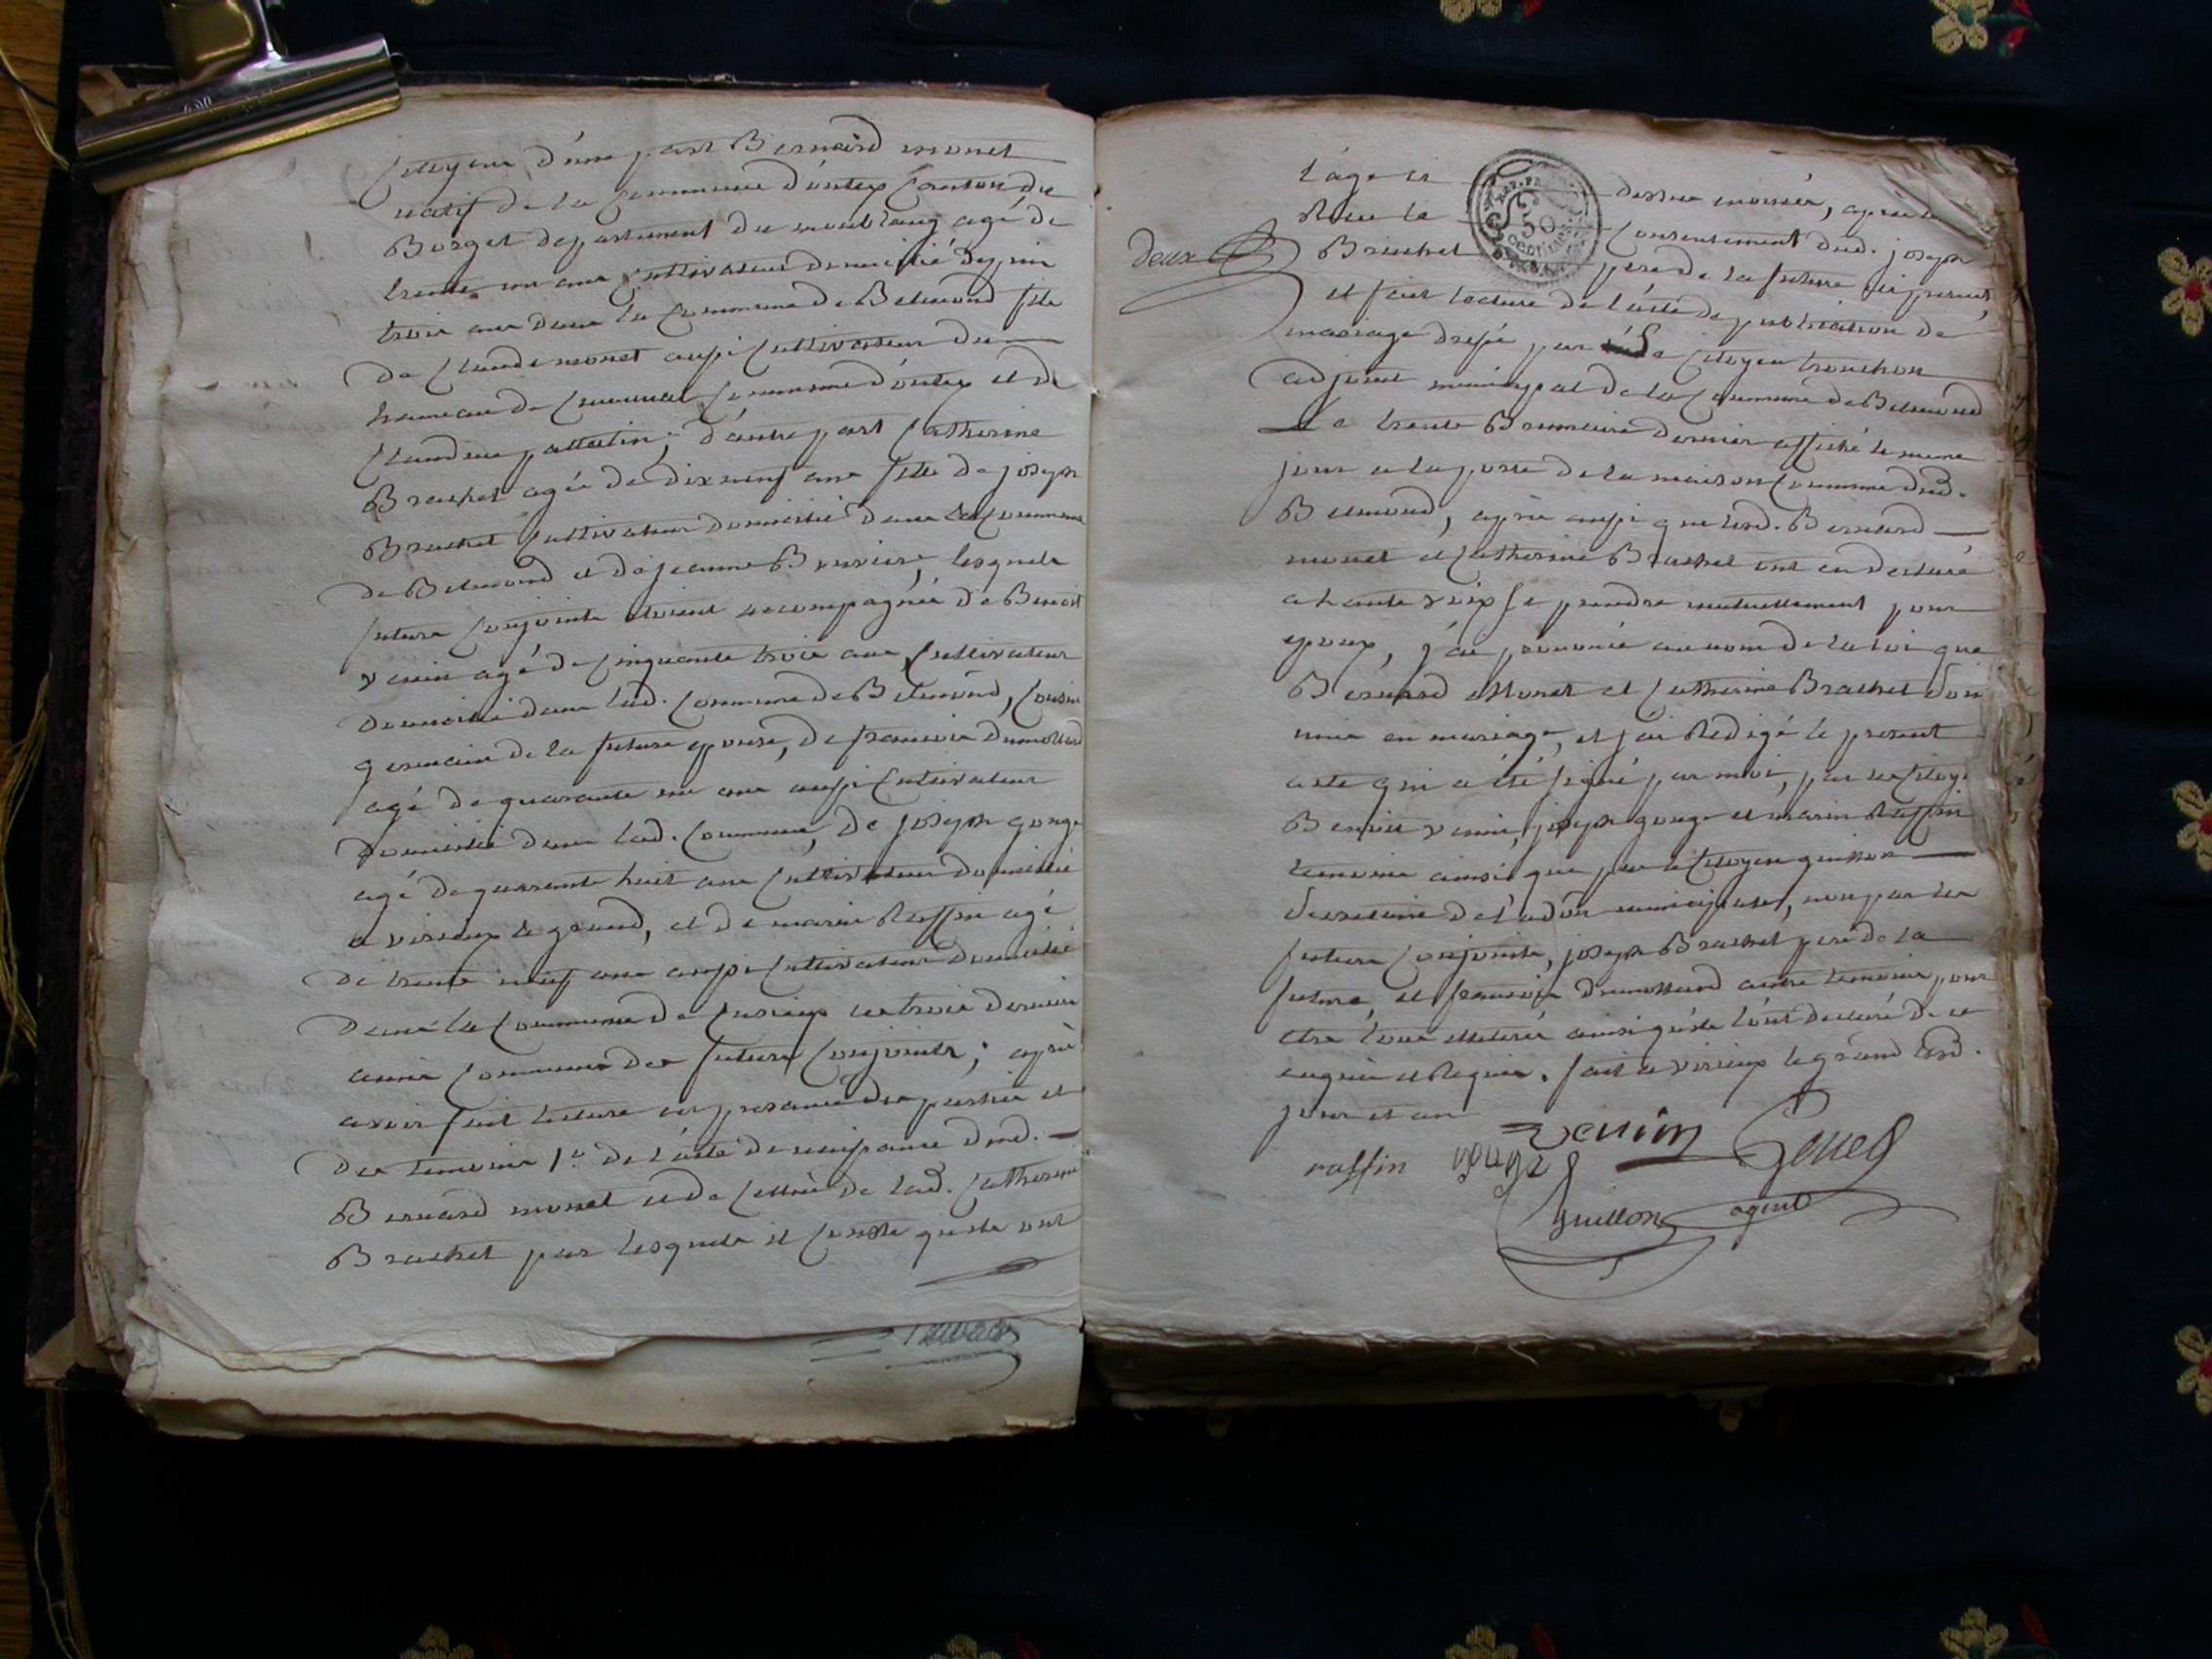 Citoyens d'une part Bernard monet
natif de la Commune d'ontex Canton du
Borget departement du montblanc agé de
trente un ans Cultivateur domicilié depuis
trois ans dans la Commune de Belmond fils
de Claude monet aussi Cultivateur du
hameau de Commune d'ontex et de
Claudine d'autre part Catherine
Brachet agée de dixneuf ans fille de joseph
Brachet Cultivateur domicilié dans la Commune
de Belmond et de jeanne lesquels
futurs Conjoints etoient accompagnés de Benoit
venin agé de Cinquante trois ans, Cultivateur
domicilié dans lad. Commune de Belmond, Cousin
germain de la future epouse, de francois dumolard
agé de quarante un ans aussi Cultivateur
domicilié dans lad. Commune, de joseph gonge
agé de quarante huit ans Cultivateur domicilié
a virieux le grand, et de marin Raffin agé
de trente neuf ans aussi Cultivateur domicilié
dans la Commune de les trois derniers
amis Communs des futurs Conjoints; après
avoir fait lecture en presence des parties et
des temoins 1°. de l'acte de naissance dud.
Bernard monet et de Celui de lad. Catherine
Brachet par lesquels il Conste qu'ils ont
l'age ci dessus enoncé, après
deux
Recu le Consentement dud. joseph
Brachet pere de la future ici present
et fait lecture de l'acte de publication de
mariage dressé par le Citoyen tronchon
adjoint municipal de la Commune de Belmond
Le trente Brumaire dernier affiché le meme
jour a la porte de la maison Commune dud.
Belmond, après aussi que lesd. Bernard
monet et Catherine Brachet ont eu declaré
a haute voix se prendre mutuellement pour
epoux, j'ai prononcé au nom de la loi que
Bernard Monet et Catherine Brachet son
unis en mariage, et j'ai Redigé le present
acte qui a été signé par moi, par les Citoy
Benoit venin, joseph gonge et marin Raffin
temoins ainsi que par le Citoyen guillon
Secretaire de l'adon municipale, non par les
futurs Conjoints, joseph Brachet pere de la
future, et francois dumollard autre temoin, pour
etre tous illiterés ainsi qu'ils l'ont declaré de ce
enquis et Requis. fait a virieux le grand lesd.
jour et an
venin
raffin gonge
guillon agent